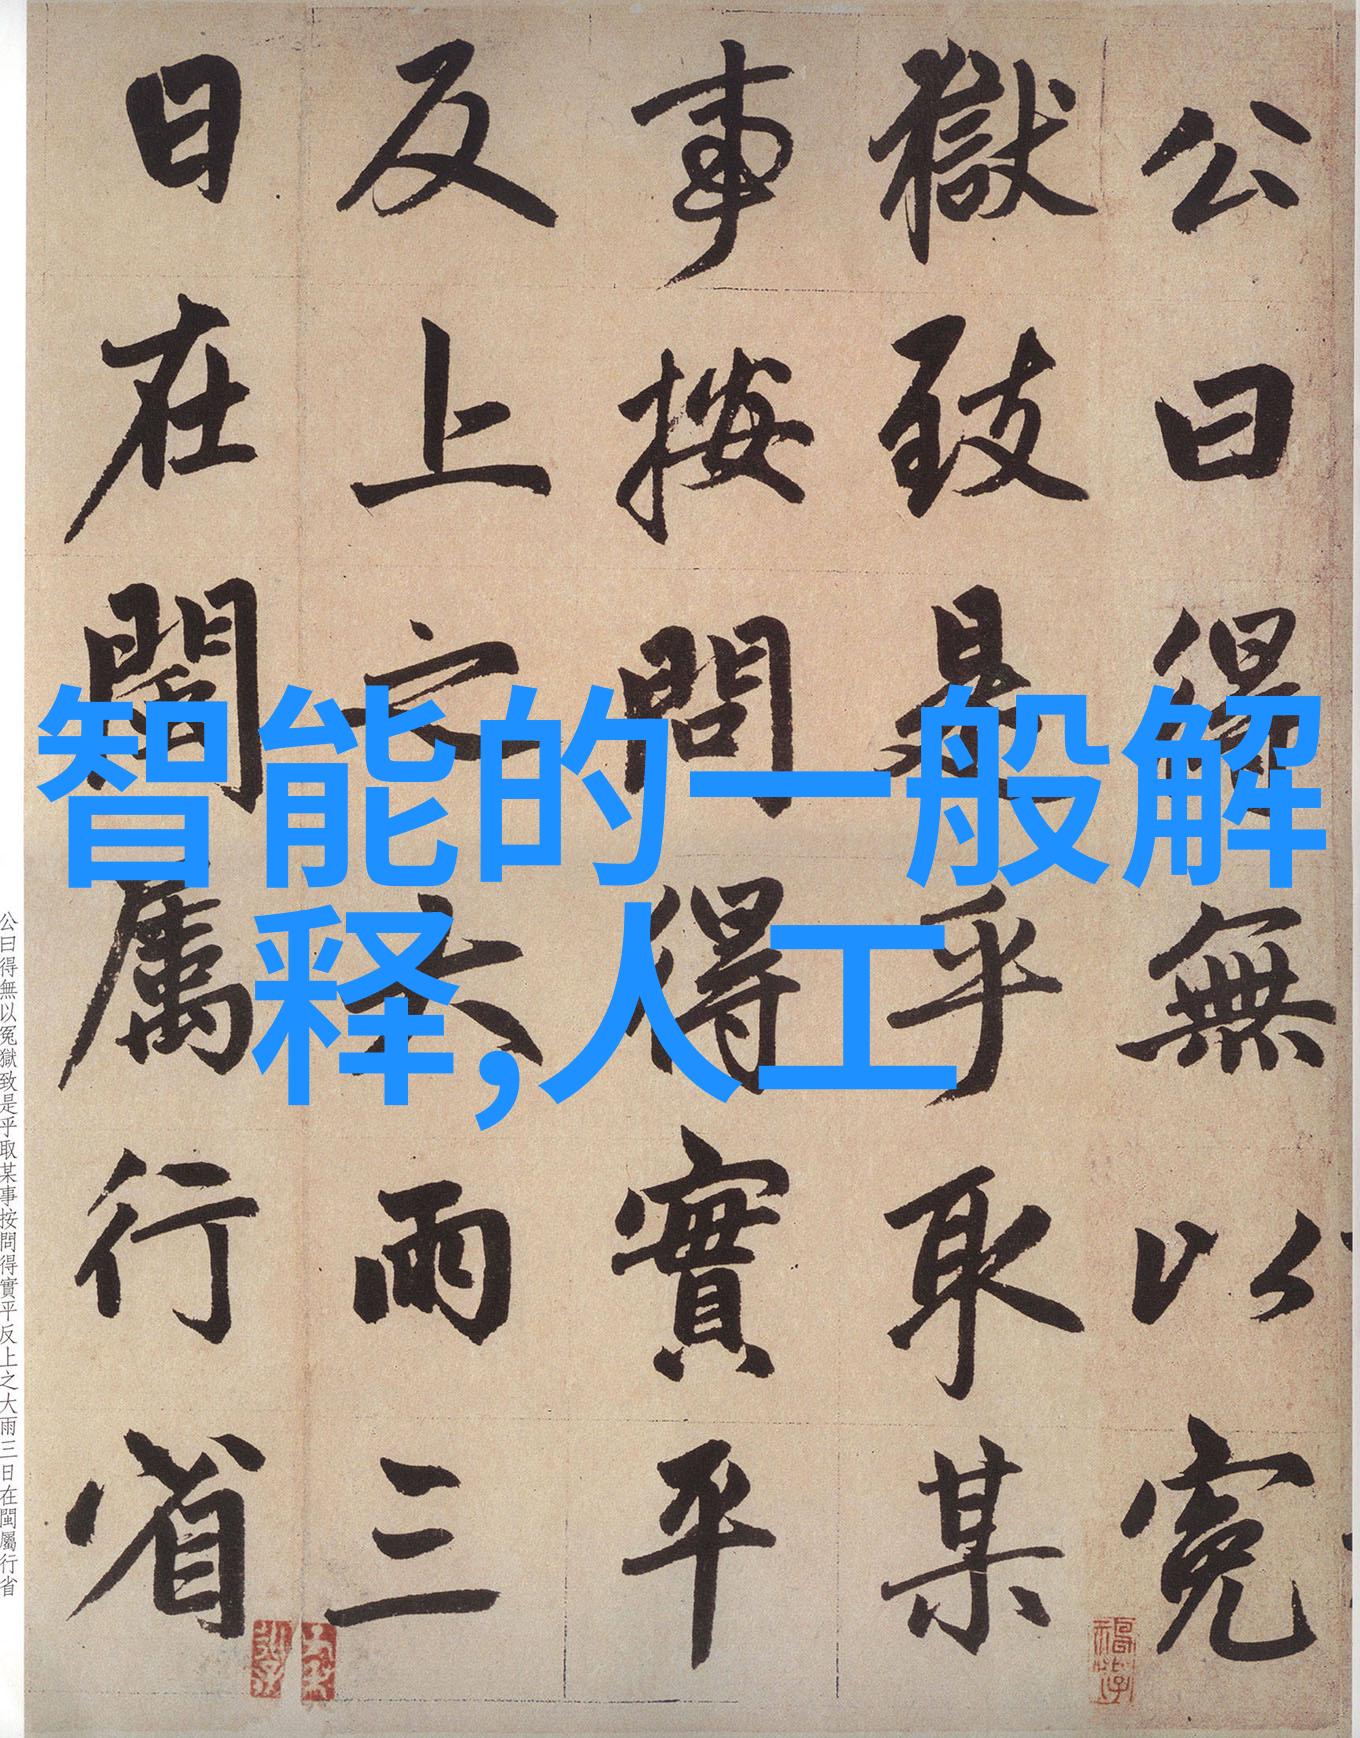 公曰得無以冤
獄致是乎取某
事按問得實平
反上之大雨三
日在閩屬行省
智能的一般解
释,人工
公曰得無以冤獄致是乎取某事按問得實平反上之大雨三日在閩屬行省